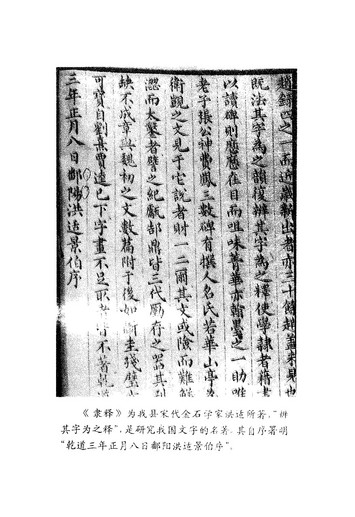 趙錄四之一而近歲新出者亦三十餘
既法其字為之韻復辨其字為之釋使學隸者藉書
以讀碑則歷歷在目而咀味菁華亦翰墨之一助唯
老子張公神費鳳三數碑有撰人名氏若華山亭為
衛覬之文見于它說者財一二爾其文或險而難
澀而太繁者譬之紀甗郜鼎皆三代勵存之器其
缺不成章與魏初之文數篇附于後如斷圭殘璧亦
可寶自劉熹賈逵已下字畫不足取者皆不著乾道
三年正月八日鄱陽洪适景伯序
《隶释》为我县宋代金石学家洪适所著,“辨
其字为之释”,是研究我国文字的名著。其自序著明
“乾道三年正月八日鄱阳洪适景伯序”。